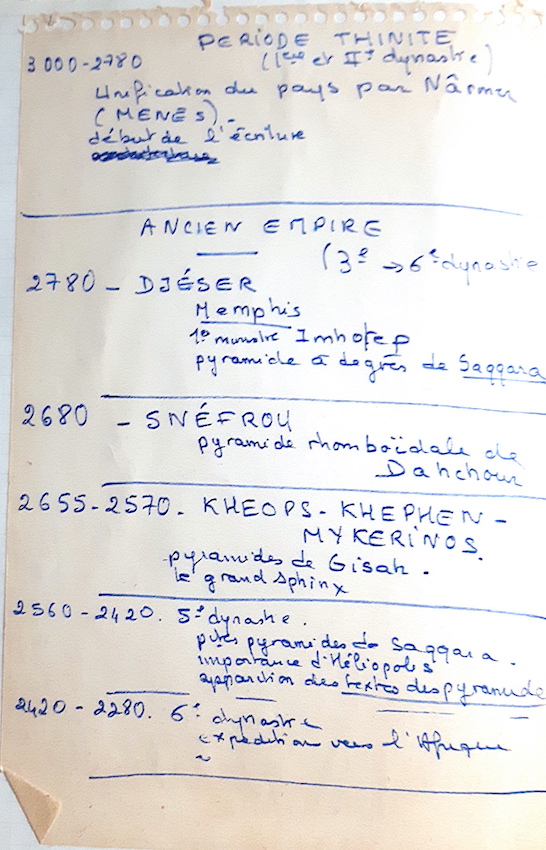 PERIODE THINITE
3000-2780 (1ère et IIe dynastie)
Unification du pays par Nârmer
(MENES).
début de l'écriture
ANCIEN EMPIRE
(3e → 6e dynastie
2780 - DJÉSER
Memphis
1er ministre Imhotep
pyramide à degrés de Saqqara
2680 - SNÉFROU
pyramide rhomboïdale de
Dahchour
2655-2570. KHEOPS - KHEPHEN -
MYKERINOS.
pyramides de Gisah.
le grand Sphinx
2560-2420. 5e dynastie.
ptes pyramides de Saqqara.
importance d'Héliopolis
apparition des textes des pyramide
2420-2280. 6e dynastie
expédition vers l'Afrique